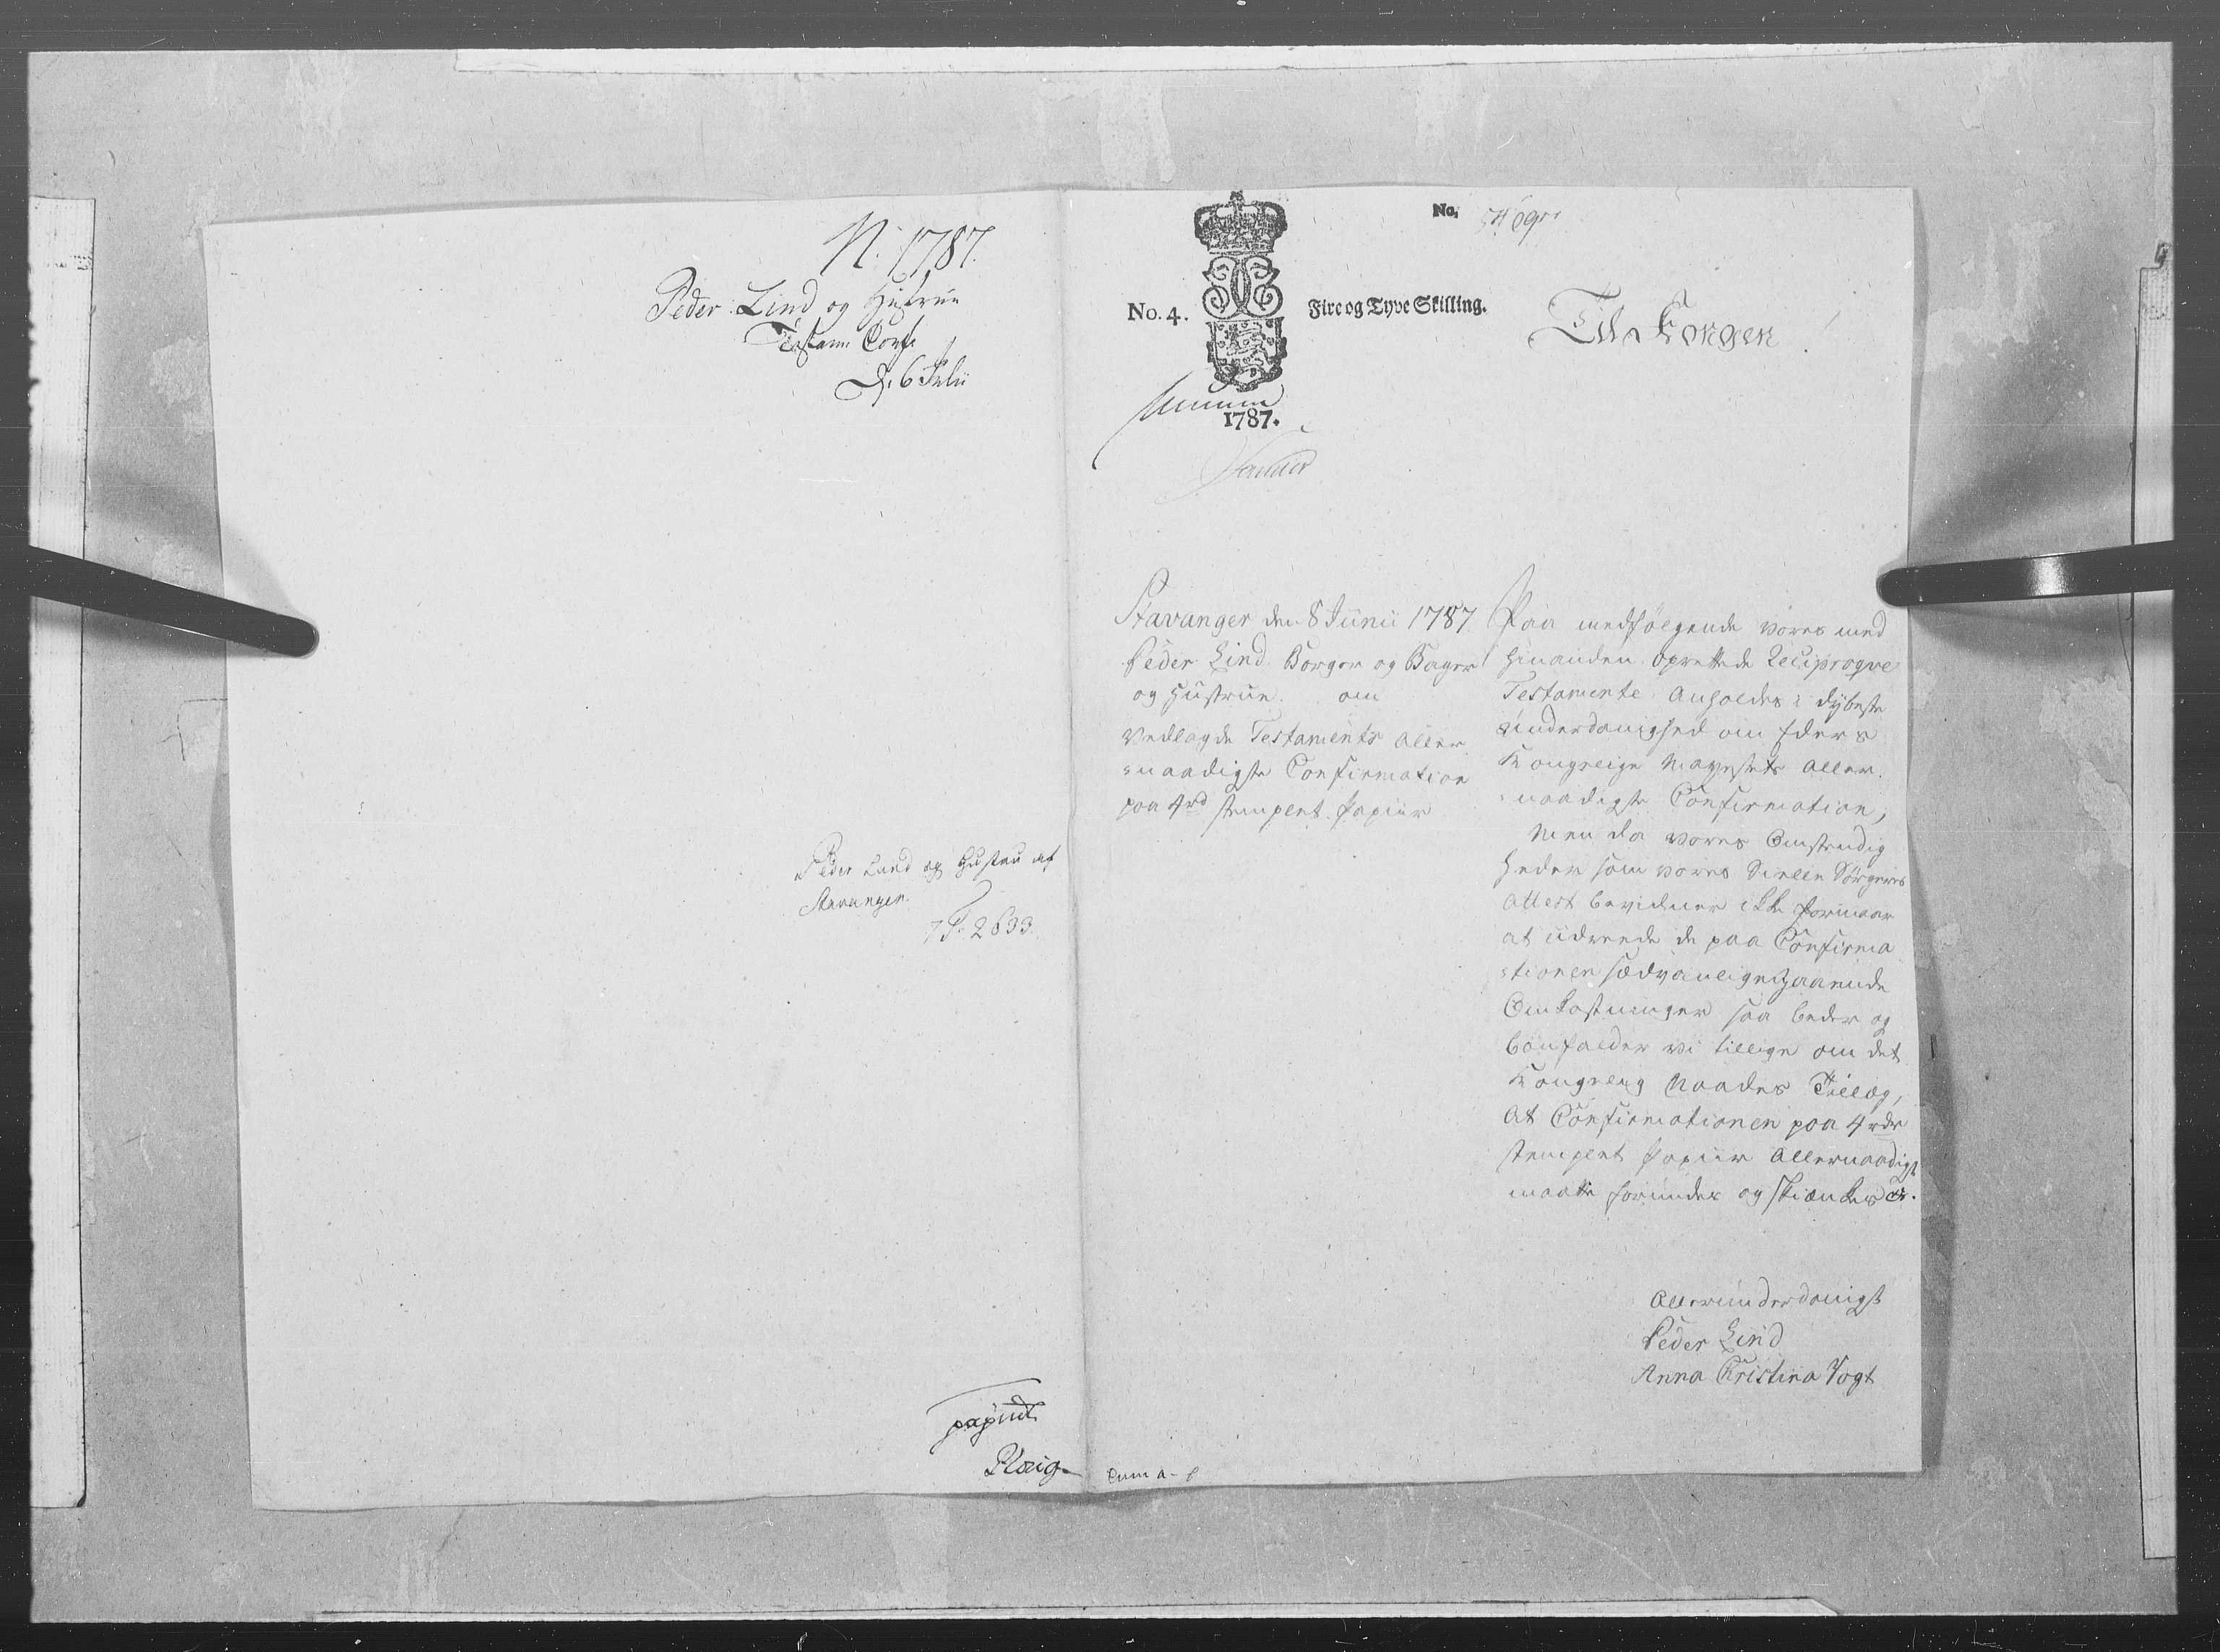 N: 1787.
Peder Lind og Hustrue
Testam: Conf:
D. 6 Julii
Peder Lind og Hustru af
Stavanger.
7 P. 2633
No.
No. 4.
Fire og Tyve Skilling.
Til Kongen!
1787.
Stavanger den 8 Junii 1787
Peder Lind Borger og Bager
og Hustrue om
vedlagde Testaments aller
=naadigste Confirmation
paa 4rd stemplet Papiir
Paa medfølgende vores med
hinanden oprettede Reciproqve
Testamente anholdes i dybeste
underdanighed om Eders
Kongelige Mayestets aller
=naadigste Confirmation,
Men da vores Omstendig
heder som vores Siæle Sørgeres
Attest bevidner ikke formaar
at udreede de paa Confirma
=tionen sædvanlige gaaende
Omkostninger saa beder og
bønfalder vi tillige om det
Kongelig Naades Tillæg,
At Confirmationen paa 4 rdr
stemplet Papiir Allernaadigst
maatte forundes og skienkes os.
Allerunderdanigst
Peder Lind
Anna Cristina Vogt